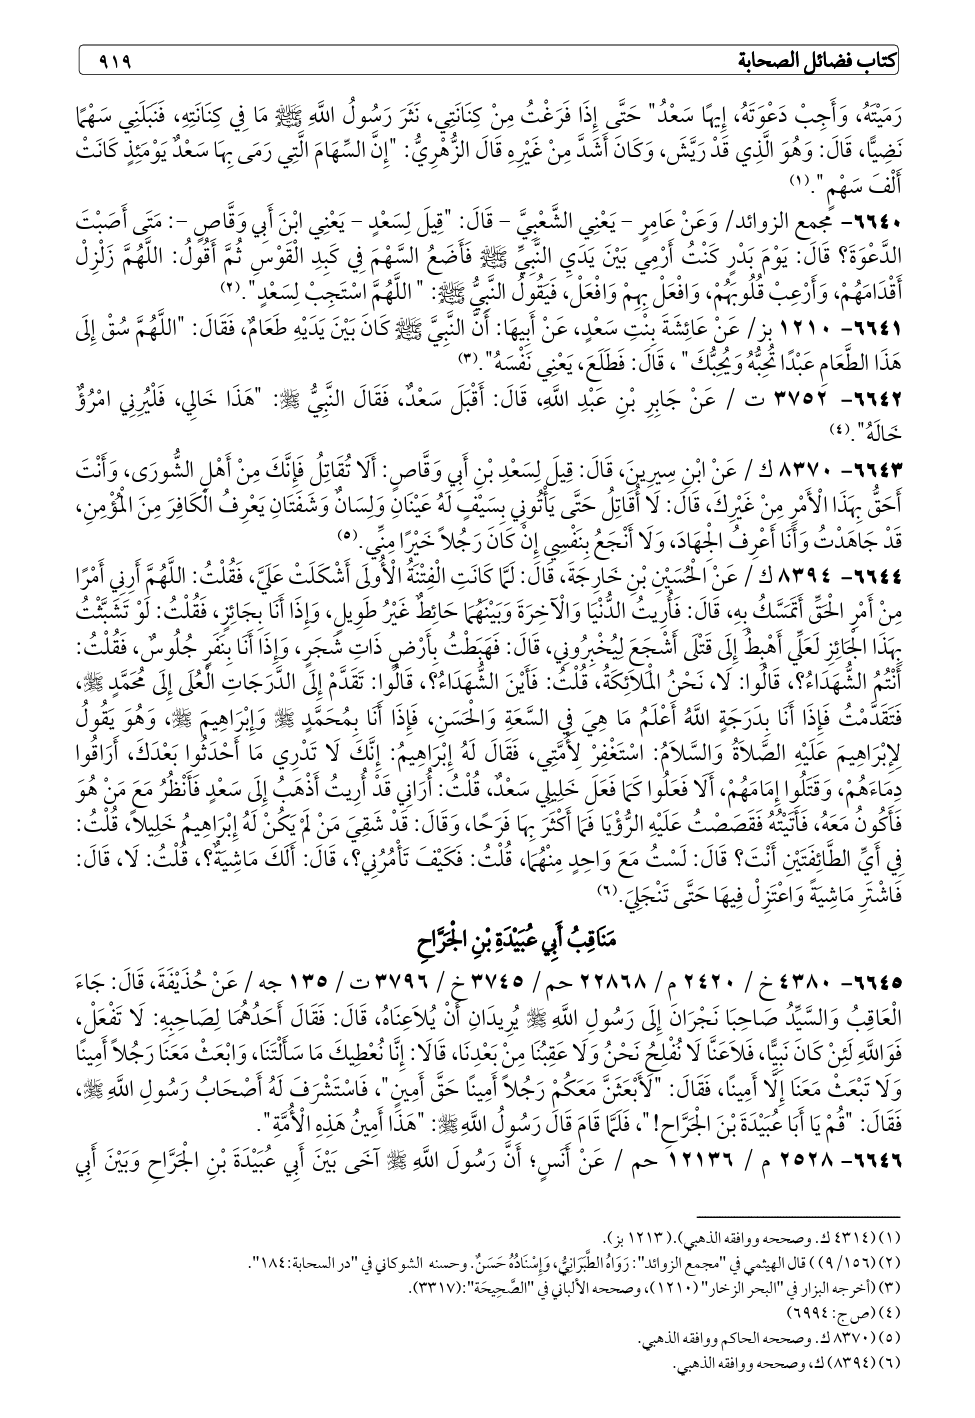 كتاب فضائل الصحابة ٩١٩
رَمَيْتَهُ، وَأَجِبْ دَعْوَتَهُ، إِيهًا سَعْدُ" حَتَّى إِذَا فَرَغْتُ مِنْ كِنَانَتِي، نَثَرَ رَسُولُ اللَّهِ ﷺ مَا فِي كِنَانَتِهِ، فَنَبَلَنِي سَهْمًا
نَضِيًّا، قَالَ: وَهُوَ الَّذِي قَدْ رَيَّشَ، وَكَانَ أَشَدَّ مِنْ غَيْرِهِ قَالَ الزُّهْرِيُّ: "إِنَّ السِّهَامَ الَّتِي رَمَى بِهَا سَعْدٌ يَوْمَئِذٍ كَانَتْ
أَلْفَ سَهْمٍ".(١)
٦٦٤٠- مجمع الزوائد/ وَعَنْ عَامِرٍ – يَعْنِي الشَّعْبِيَّ – قَالَ: "قِيلَ لِسَعْدٍ – يَعْنِي ابْنَ أَبِي وَقَّاصٍ –: مَتَى أَصَبْتَ
الدَّعْوَةَ؟ قَالَ: يَوْمَ بَدْرٍ كُنْتُ أَرْمِي بَيْنَ يَدَيِ النَّبِيِّ ﷺ فَأَضَعُ السَّهْمَ فِي كَبِدِ الْقَوْسِ ثُمَّ أَقُولُ: اللَّهُمَّ زَلْزِلْ
أَقْدَامَهُمْ، وَأَرْعِبْ قُلُوبَهُمْ، وَافْعَلْ بِهِمْ وَافْعَلْ، فَيَقُولُ النَّبِيُّ ﷺ: " اللَّهُمَّ اسْتَجِبْ لِسَعْدٍ".(٢)
٦٦٤١- ١٢١٠ بز/ عَنْ عَائِشَةَ بِنْتِ سَعْدٍ، عَنْ أَبِيهَا: أَنَّ النَّبِيَّ ﷺ كَانَ بَيْنَ يَدَيْهِ طَعَامٌ، فَقَالَ: "اللَّهُمَّ سُقْ إِلَى
هَذَا الطَّعَامِ عَبْدًا تُحِبُّهُ وَيُحِبُّكَ" ، قَالَ: فَطَلَعَ، يَعْنِي نَفْسَهُ".(٣)
٦٦٤٢- ٣٧٥٢ ت / عَنْ جَابِرِ بْنِ عَبْدِ اللَّهِ، قَالَ: أَقْبَلَ سَعْدٌ، فَقَالَ النَّبِيُّ ﷺ: "هَذَا خَالِي، فَلْيُرِنِي امْرُؤٌ
خَالَهُ".(٤)
٦٦٤٣- ٨٣٧٠ ك/ عَنْ ابْنِ سِيرِينَ، قَالَ: قِيلَ لِسَعْدِ بْنِ أَبِي وَقَّاصٍ: أَلَا تُقَاتِلُ فَإِنَّكَ مِنْ أَهْلِ الشُّورَى، وَأَنْتَ
أَحَقُّ بِهَذَا الْأَمْرِ مِنْ غَيْرِكَ، قَالَ: لَا أُقَاتِلُ حَتَّى يَأْتُونِي بِسَيْفٍ لَهُ عَيْنَانِ وَلِسَانٌ وَشَفَتَانِ يَعْرِفُ الْكَافِرَ مِنَ الْمُؤْمِنِ،
قَدْ جَاهَدْتُ وَأَنَا أَعْرِفُ الْجِهَادَ، وَلَا أَنْجَعُ بِنَفْسِي إِنْ كَانَ رَجُلاً خَيْرًا مِنِّي.(٥)
٦٦٤٤- ٨٣٩٤ ك/ عَنْ الْحُسَيْنِ بْنِ خَارِجَةَ، قَالَ: لَمَّا كَانَتِ الْفِتْنَةُ الْأُولَى أَشْكَلَتْ عَلَيَّ، فَقُلْتُ: اللَّهُمَّ أَرِنِي أَمْرًا
مِنْ أَمْرِ الْحَقِّ أَتَمَسَّكُ بِهِ، قَالَ: فَأُرِيتُ الدُّنْيَا وَالْآخِرَةَ وَبَيْنَهُمَا حَائِطٌ غَيْرُ طَوِيلٍ، وَإِذَا أَنَا بِجَائِزٍ، فَقُلْتُ: لَوْ تَشَبَّثْتُ
بِهَذَا الْجَائِزِ لَعَلِّي أَهْبِطُ إِلَى قَتْلَى أَشْجَعَ لِيُخْبِرُونِي، قَالَ: فَهَبَطْتُ بِأَرْضٍ ذَاتِ شَجَرٍ، وَإِذَا أَنَا بِنَفَرٍ جُلُوسٌ، فَقُلْتُ:
أَنْتُمُ الشُّهَدَاءُ؟، قَالُوا: لَا، نَحْنُ الْمَلَائِكَةُ، قُلْتُ: فَأَيْنَ الشُّهَدَاءُ؟، قَالُوا: تَقَدَّمْ إِلَى الدَّرَجَاتِ الْعُلَى إِلَى مُحَمَّدٍ ﷺ،
فَتَقَدَّمْتُ فَإِذَا أَنَا بِدَرَجَةٍ اللَّهُ أَعْلَمُ مَا هِيَ فِي السَّعَةِ وَالْحَسَنِ، فَإِذَا أَنَا بِمُحَمَّدٍ ﷺ وَإِبْرَاهِيمَ ﷺ، وَهُوَ يَقُولُ
لِإِبْرَاهِيمَ عَلَيْهِ الصَّلَاةُ وَالسَّلَامُ: اسْتَغْفِرْ لِأُمَّتِي، فَقَالَ لَهُ إِبْرَاهِيمُ: إِنَّكَ لَا تَدْرِي مَا أَحْدَثُوا بَعْدَكَ، أَرَاقُوا
دِمَاءَهُمْ، وَقَتَلُوا إِمَامَهُمْ، أَلَا فَعَلُوا كَمَا فَعَلَ خَلِيلِي سَعْدٌ، قُلْتُ: أُرَانِي قَدْ أُرِيتُ أَذْهَبُ إِلَى سَعْدٍ فَأَنْظُرُ مَعَ مَنْ هُوَ
فَأَكُونُ مَعَهُ، فَأَتَيْتُهُ فَقَصَصْتُ عَلَيْهِ الرُّؤْيَا فَمَا أَكْثَرَ بِهَا فَرَحًا، وَقَالَ: قَدْ شَقِيَ مَنْ لَمْ يَكُنْ لَهُ إِبْرَاهِيمُ خَلِيلاً، قُلْتُ:
فِي أَيِّ الطَّائِفَتَيْنِ أَنْتَ؟ قَالَ: لَسْتُ مَعَ وَاحِدٍ مِنْهُمَا، قُلْتُ: فَكَيْفَ تَأْمُرُنِي؟، قَالَ: أَلَكَ مَاشِيَةٌ؟، قُلْتُ: لَا، قَالَ:
فَاشْتَرِ مَاشِيَةً وَاعْتَزِلْ فِيهَا حَتَّى تَنْجَلِيَ.(٦)
مَنَاقِبُ أَبِي عُبَيْدَةِ بْنِ الْجَرَّاحِ
٦٦٤٥- ٤٣٨٠ خ / ٢٤٢٠ م/ ٢٢٨٦٨ حم / ٣٧٤٥ خ / ٣٧٩٦ ت/ ١٣٥ جه/ عَنْ حُذَيْفَةَ، قَالَ: جَاءَ
الْعَاقِبُ وَالسَّيِّدُ صَاحِبَا نَجْرَانَ إِلَى رَسُولِ اللَّهِ ﷺ يُرِيدَانِ أَنْ يُلَاعِنَاهُ، قَالَ: فَقَالَ أَحَدُهُمَا لِصَاحِبِهِ: لَا تَفْعَلْ،
فَوَاللَّهِ لَئِنْ كَانَ نَبِيًّا، فَلَاعَنَّا لَا نُفْلِحُ نَحْنُ وَلَا عَقِبُنَا مِنْ بَعْدِنَا، قَالَا: إِنَّا نُعْطِيكَ مَا سَأَلْتَنَا، وَابْعَثْ مَعَنَا رَجُلاً أَمِينًا
وَلَا تَبْعَثْ مَعَنَا إِلَّا أَمِينًا، فَقَالَ: "لَأَبْعَثَنَّ مَعَكُمْ رَجُلاً أَمِينًا حَقَّ أَمِينٍ"، فَاسْتَشْرَفَ لَهُ أَصْحَابُ رَسُولِ اللَّهِ ﷺ،
فَقَالَ: "قُمْ يَا أَبَا عُبَيْدَةَ بْنَ الْجَرَّاحِ! "، فَلَمَّا قَامَ قَالَ رَسُولُ اللَّهِ ﷺ: "هَذَا أَمِينُ هَذِهِ الْأُمَّةِ".
٦٦٤٦- ٢٥٢٨ م / ١٢١٣٦ حم / عَنْ أَنَسٍ؛ أَنَّ رَسُولَ اللَّهِ ﷺ آخَى بَيْنَ أَبِي عُبَيْدَةَ بْنِ الْجَرَّاحِ وَبَيْنَ أَبِي
(١) (٤٣١٤ ك. وصححه ووافقه الذهبي).( ١٢١٣ بز).
(٢) (٩/١٥٦ )) قال الهيثمي في "مجمع الزوائد": رَوَاهُ الطَّبَرَانِيُّ، وَإِسْنَادُهُ حَسَنٌ. وحسنه الشوكاني في "در السحابة:١٨٤".
(٣) (أخرجه البزار في "البحر الزخار" (١٢١٠)، وصححه الألباني في "الصَّحِيحَة":(٣٣١٧).
(٤) (ص ج: ٦٩٩٤)
(٥) (٨٣٧٠ ك. وصححه الحاكم ووافقه الذهبي.
(٦) (٨٣٩٤) ك، وصححه ووافقه الذهبي.